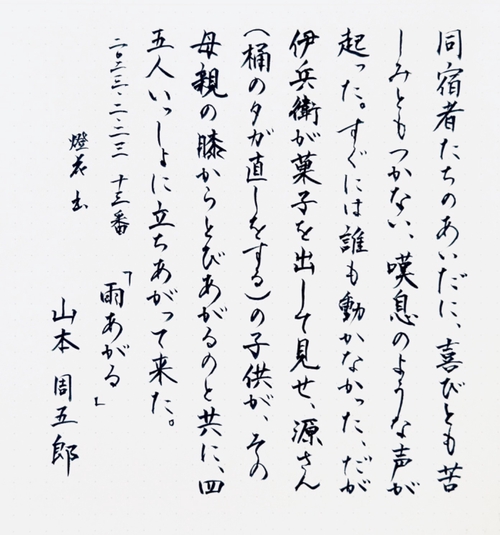 同宿者たちのあいだに、喜びとも苦
しみともつかない、嘆息のような声が
起った。すぐには誰も動かなかった、だが
伊兵衛が菓子を出して見せ、源さん
(桶のタガ直しをする)の子供が、その
母親の膝からとびあがるのと共に、四
五人いっしょに立ちあがって来た。
「雨あがる」
山本周五郎
二〇二三・二・二三 十三番